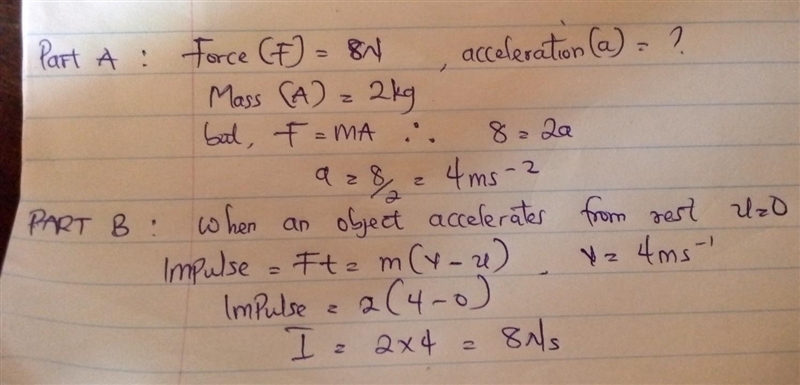 Part A : Force (F) = 8N , acceleration (a) = ?
Mass (A) = 2kg
but, F = MA ∴ 8 = 2a
a = 8/2 = 4ms⁻²
PART B : When an object accelerates from rest u=0
Impulse = Ft = m(v-u) , v = 4ms⁻¹
Impulse = 2(4-0)
I = 2x4 = 8N/s